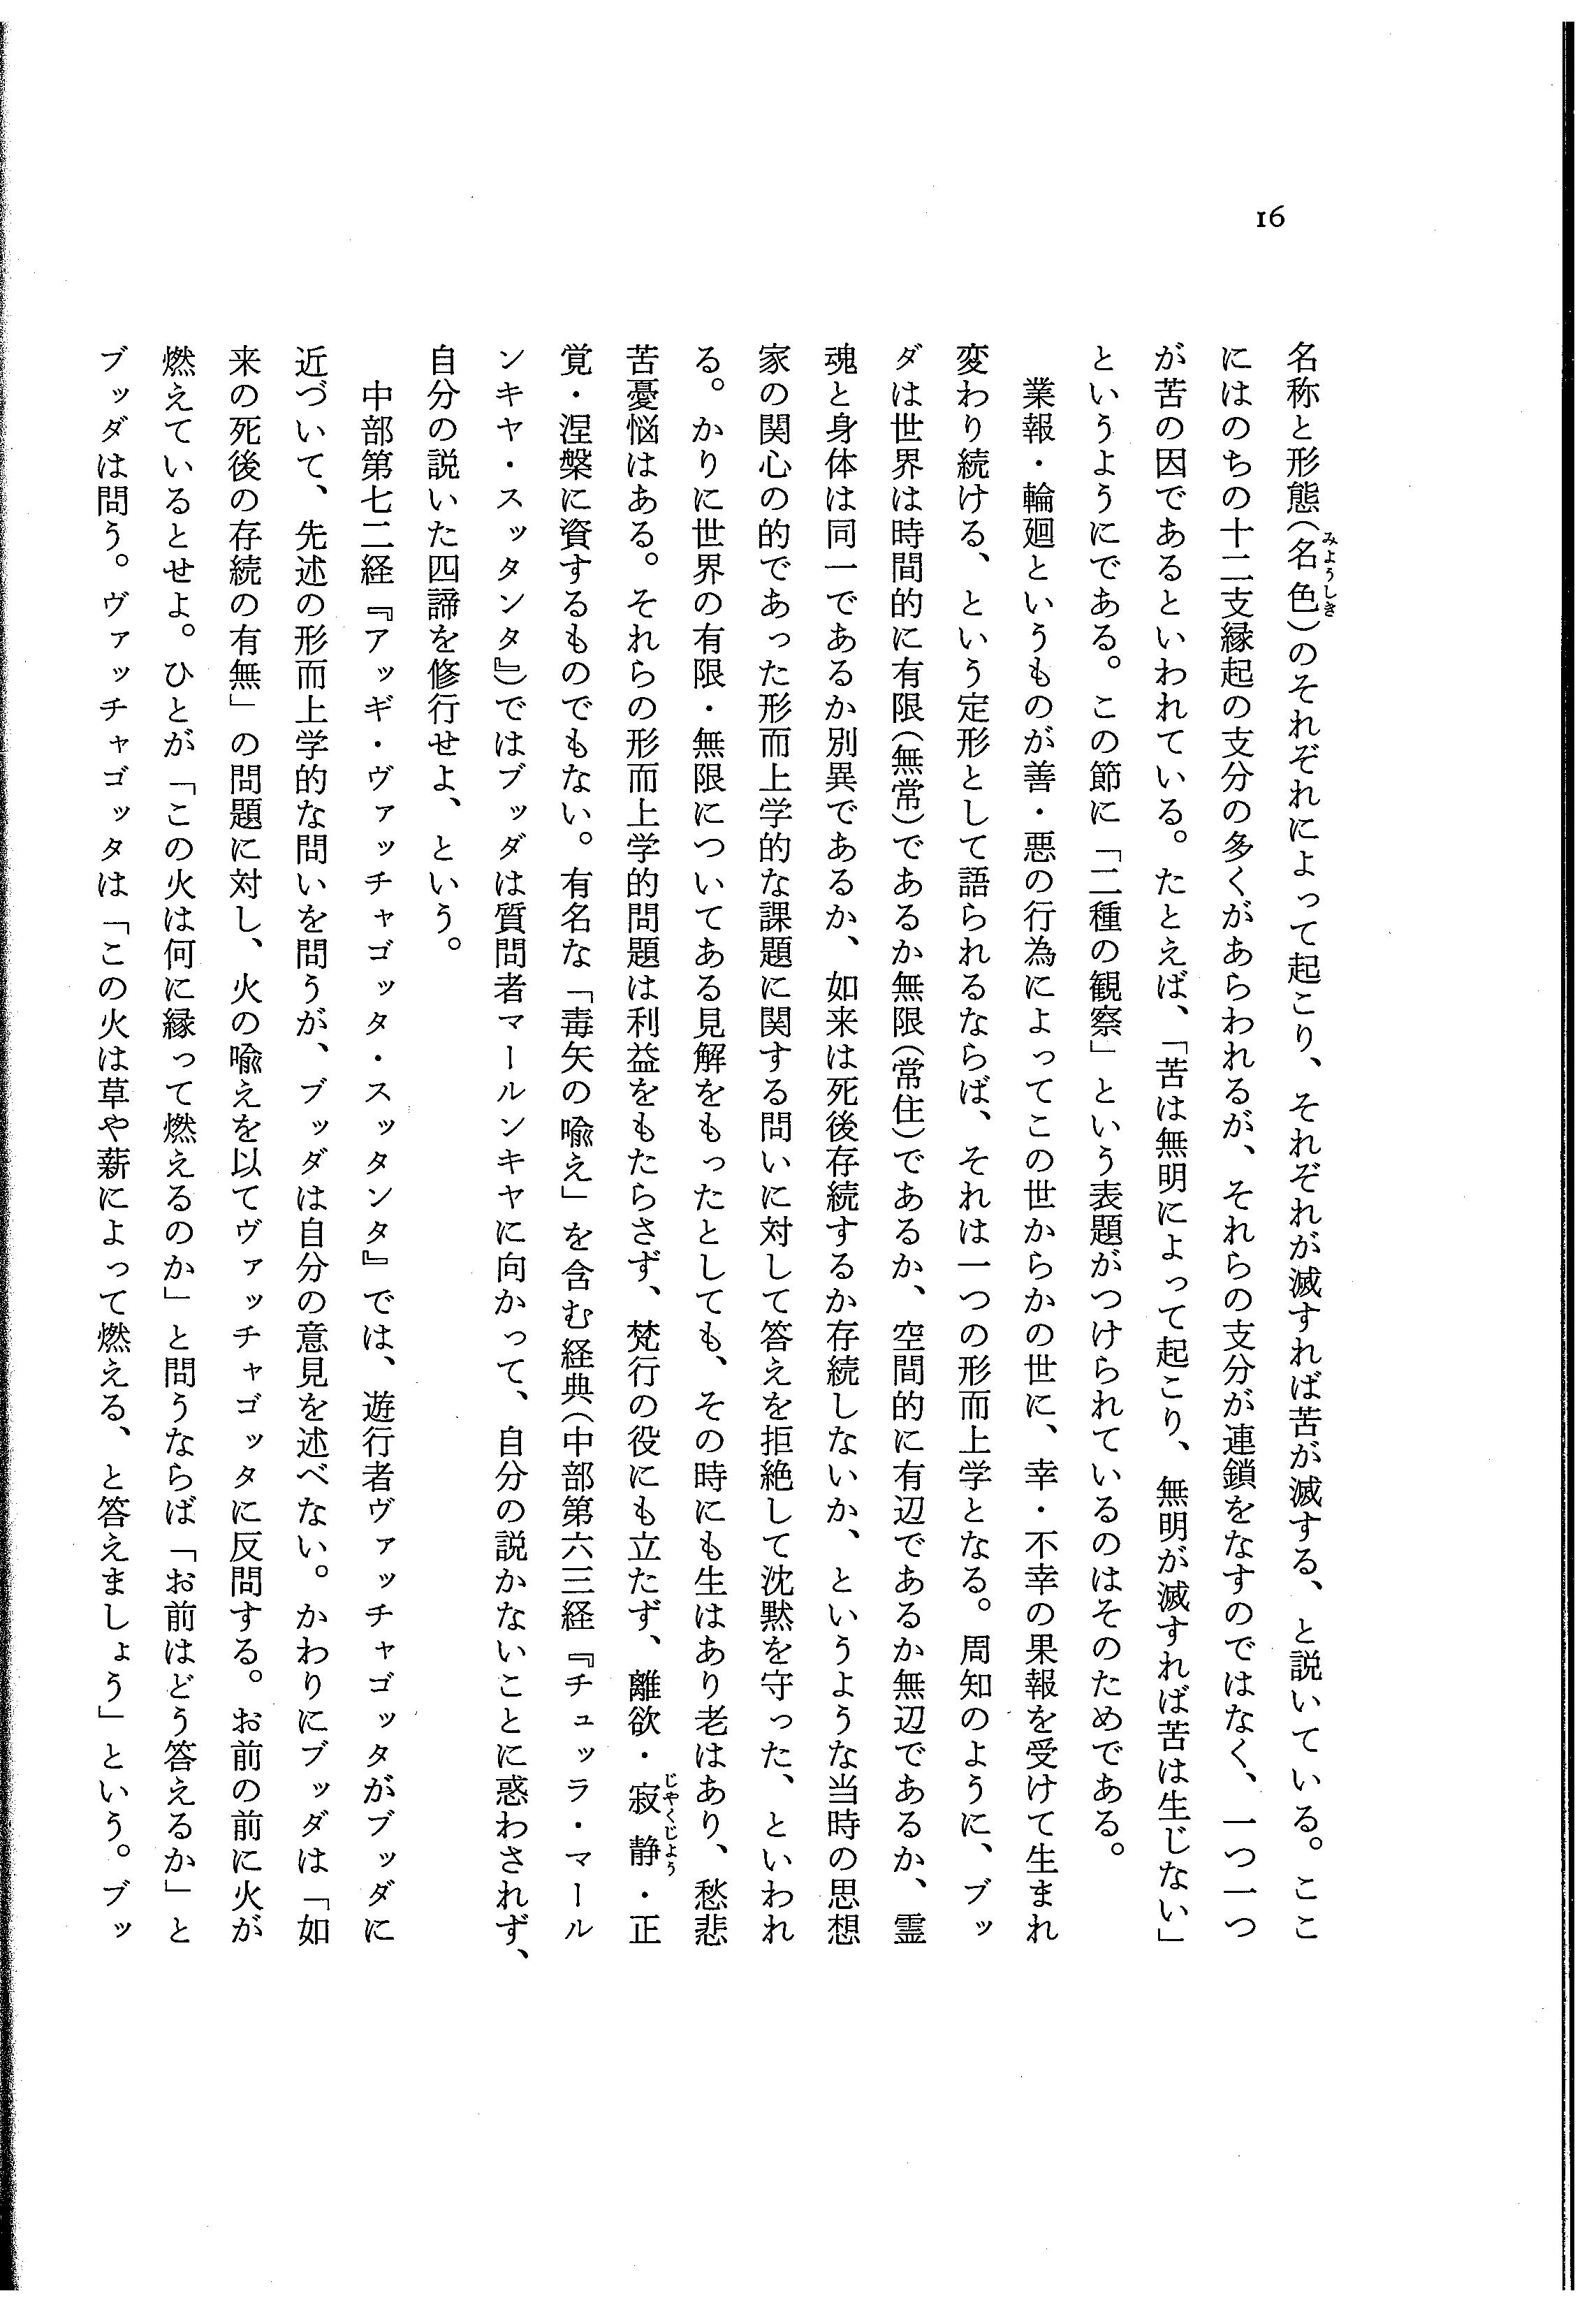 16
名称と形態(名色)のそれぞれによって起こり、それぞれが滅すれば苦が滅する、と説いている。ここ
みようしき
にはのちの十二支縁起の支分の多くがあらわれるが、それらの支分が連鎖をなすのではなく、一つ一つ
が苦の因であるといわれている。たとえば、「苦は無明によって起こり、無明が滅すれば苦は生じない」
というようにである。この節に「二種の観察」という表題がつけられているのはそのためである。
業報・輪廻というものが善・悪の行為によってこの世からかの世に、幸・不幸の果報を受けて生まれ
変わり続ける、という定形として語られるならば、それは一つの形而上学となる。周知のように、ブッ
ダは世界は時間的に有限(無常)であるか無限(常住)であるか、空間的に有辺であるか無辺であるか、霊
魂と身体は同一であるか別異であるか、如来は死後存続するか存続しないか、というような当時の思想
家の関心の的であった形而上学的な課題に関する問いに対して答えを拒絶して沈黙を守った、といわれ
る。かりに世界の有限・無限についてある見解をもったとしても、その時にも生はあり老はあり、愁悲
苦憂悩はある。それらの形而上学的問題は利益をもたらさず、梵行の役にも立たず、離欲・寂静・正
じやくじよう
覚・涅槃に資するものでもない。有名な「毒矢の喩え」を含む経典(中部第六三経『チュッラ・マール
ンキヤ・スッタンタ』)ではブッダは質問者マールンキヤに向かって、自分の説かないことに惑わされず、
自分の説いた四諦を修行せよ、という。
中部第七二経『アッギ・ヴァッチャゴッタ・スッタンタ』では、遊行者ヴァッチャゴッタがブッダに
近づいて、先述の形而上学的な問いを問うが、ブッダは自分の意見を述べない。かわりにブッダは「如
来の死後の存続の有無」の問題に対し、火の喩えを以てヴァッチャゴッタに反問する。お前の前に火が
燃えているとせよ。ひとが「この火は何に縁って燃えるのか」と問うならば「お前はどう答えるか」と
ブッダは問う。ヴァッチャゴッタは「この火は草や薪によって燃える、と答えましょう」という。ブッ